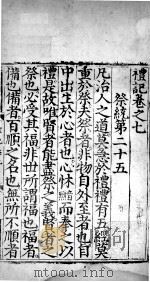 禮記卷之七
祭統第二十五
凡治人之道莫急於禮禮有五經莫
重於祭夫祭者非物自外至者也自
中出生於心者也心怵而奉之以
禮是故唯賢者能盡祭之義賢者之
祭也必受其福非世所謂福也福者
備也備者百順之名也無所不順者